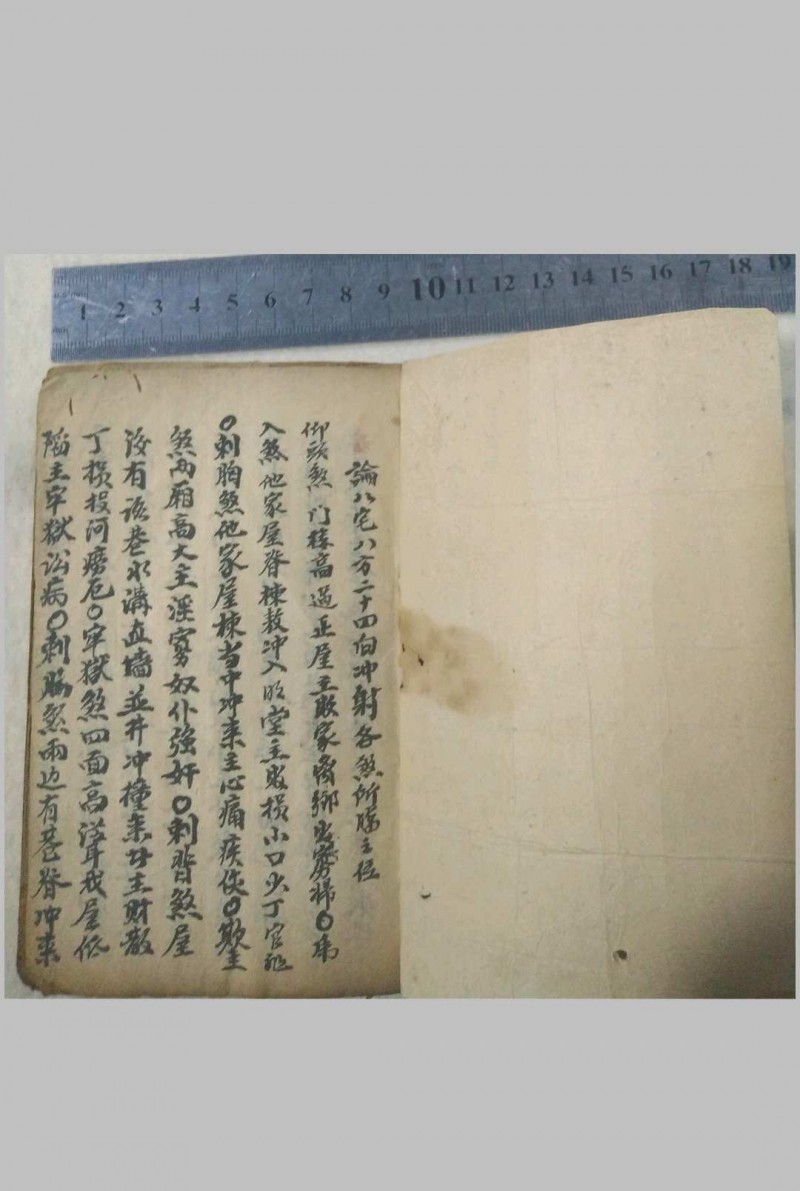 1 2 3 4 5 6 7 8 9 10 11 12 13 14 15 16 17 18 19
論八宅八方二十四向冲射各煞所勝主位
仰頭煞门樓高過正屋主敗家离鄉出寡婦〇
入煞他家屋脊棟教冲入明堂主敗損小口少丁官訟
〇刺胸煞他家屋棟当中冲來主心痛疾使〇欺主
煞两廂高大主淫寡奴仆強奸〇刺背煞屋
後有谈巷水溝直墻並井冲撞來廿主財散
丁損投河癆厄〇牢獄煞四面高耸我屋低
陷主牢獄訟病〇刺脇煞兩边有巷脊冲來